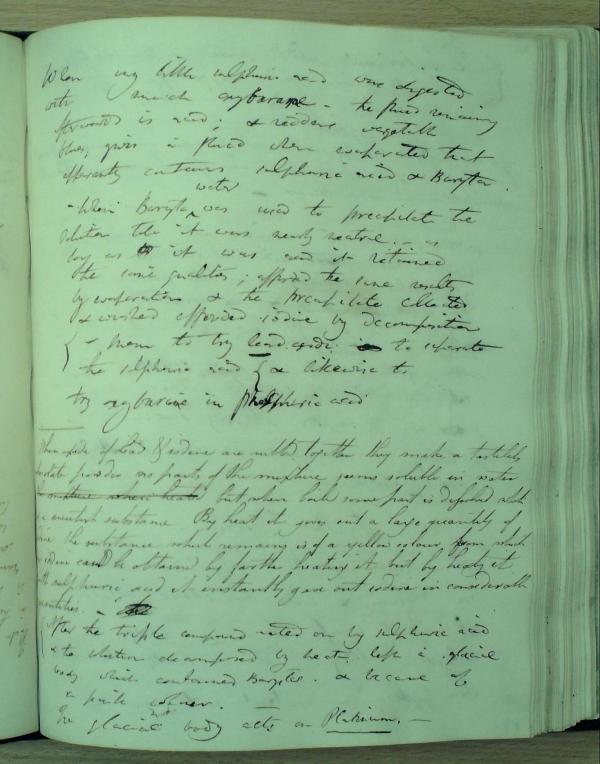 When very little sulphuric acid was digested
with much oxybarane - the fluid remaining
afterwards is acid; & reddens vegetable
blues, gives a fluid when evaporated that
apparently contains sulphuric acid & Barytes.
water
- When Baryta ^ was used to precipitate the
solution till it was nearly neutral. - as
long as it was acid it retained
the same qualities; afforded the same results
by evaporation & the precipitate collected
& washed afforded iodine by decomposition
{ - Mem to try lead oxide to separate
the sulphuric acid { & likewise to
try oxybarane in phosphoric acid
When oxide of lead & iodine are rubbed together they make a
powder no parts of the mixture seems soluble in water
but when heated some part is
substance. By heat it gives out a large quantity of
The substance which remains is of a yellow colour from which
iodine can be obtained by farther heating it, but by heating it
sulphuric acid it instantly gave out iodine in considerable
quantities. -
After the triple compound acted on by sulphuric acid
& the solution decomposed by heat. left a glacial
body which contained Barytes. & became of
a pink colour. -
The glacial body acts on Platinum. -